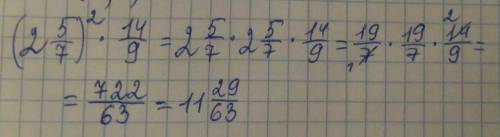 (2 5/7)² · 14/9 = 2 5/7 · 2 5/7 · 14/9 = 19/7 · 19/7 · 14/9 =
1 2
= 722/63 = 11 29/63